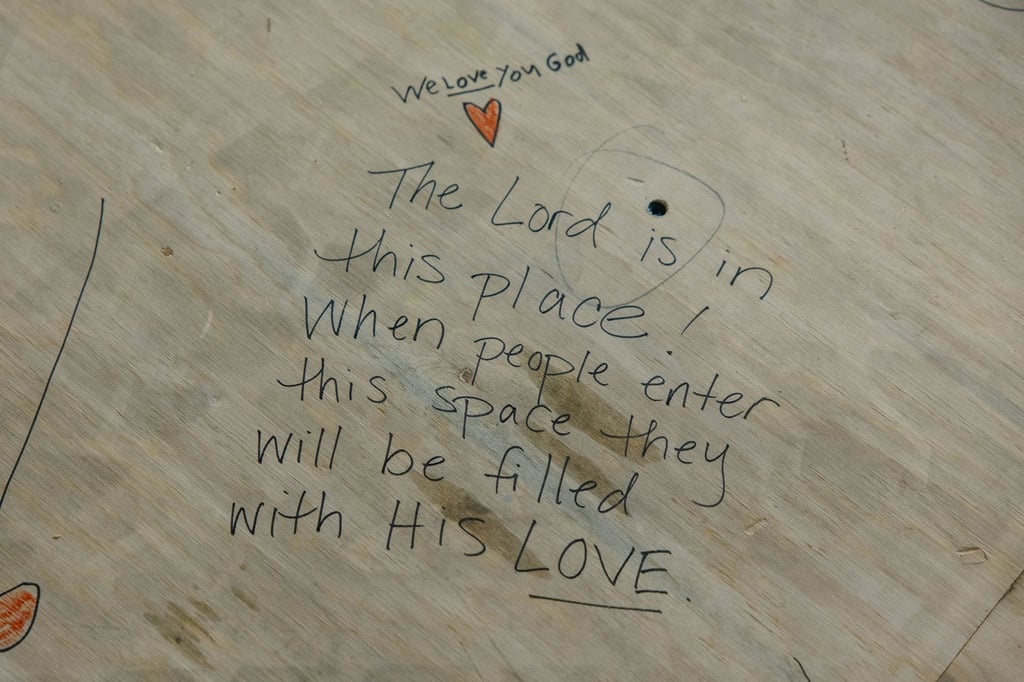 We Love You God
The Lord is in
this place!
When people enter
this space they
will be filled
with His LOVE.